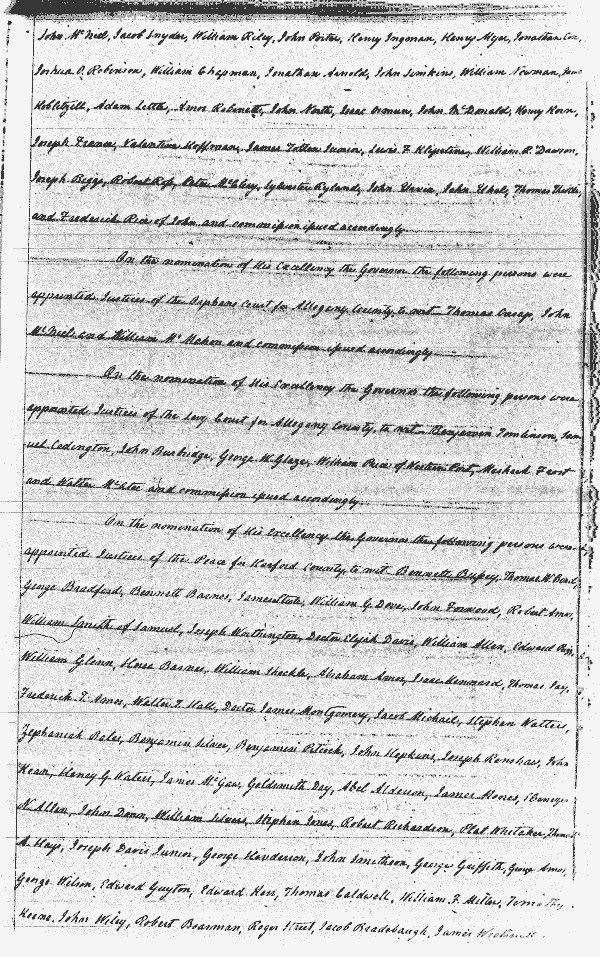 John McNeel, Jacob Snyder, William Riley, John Porter, Henry Ingman, Henry Myer, Jonathan Cox,
Joshua O. Robinson, William Chapman, Jonathan Arnold, John Simkins, William Newman,
Hoblitzell, Adam Letter, Amor Robinette, John North, Isaac Osmun, John McDonald, Henry Korn,
Joseph France, Valentine Hoffman, James Totten Junior, Lewis F. Klipstine, William R. Dawson,
Joseph Biggs, Robert Ross, Peter McCleary, Sylvester Ryland, John John Thomas
and Frederick Rice of John and commission issued accordingly
On the nomination of His Excellency the Governor the following persons were
appointed Justices of the Orphans Court for Allegany County, to wit Thomas Cresap, John
McNeel and William McMahon and commission issued accordingly
On the nomination of His Excellency the Governor the following persons were
appointed Justices of the Levy Court for Allegany County, to wit Benjamin Tomlinson, Sam
uel Codington, John Burbridge, George W. Glaze, William Price of Western Port, Meshack Frost
and Walter and commission issued accordingly
On the nomination of His Excellency the Governor the following persons were
appointed Justices of the Peace for Harford County, to wit Bennett Bussey, Thomas W. Bond,
George Bradford, Bennett Barnes, James William G. Dove, John Forwood, Robert Amos,
William Smith of Samuel, Joseph Worthington, Doctor Elijah Davis, William Allen, Edward
William Glenn, Hosea Barnes, William Abraham Amos, Isaac Thomas Jay,
Frederick T. Amos, Walter T. Hall, Doctor James Montgomery, Jacob Michael, Stephen Watters,
Zephaniah Bales, Benjamin Silver, Benjamin John Hopkins, Joseph Renshaw, John
Kean, Henry G. Waters, James McGaw, Goldsmith Day, Abel Alderson, James Moores, Ebenezer
N. Allen, John Dunn, William Silvers, Stephen Jones, Robert Richardson, Plat Whitaker, Thomas
A. Hays, Joseph Davis Junior, George Henderson, John Smithson, George Griffith, George Amos,
George Wilson, Edward Guyton, Edward Kerr, Thomas Caldwell, William F. Miller, Timothy
Keene, John Wiley, Robert Boarman, Roger Street, Jacob Bradebaugh, James